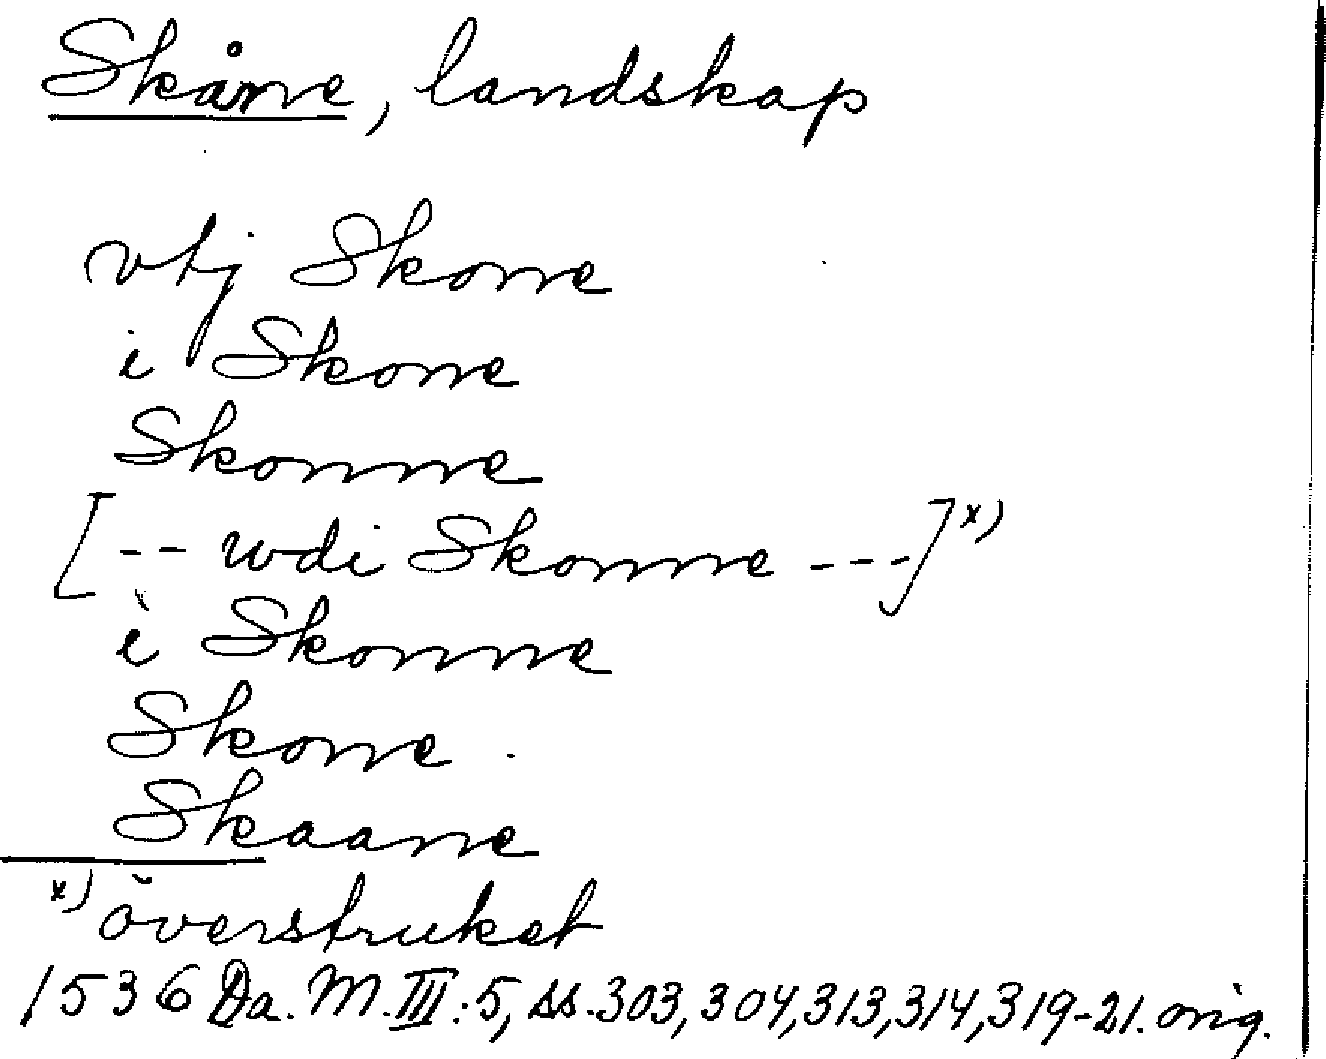 Skåne, landskap
vtj Skone
i Skone
Skonne
[-- wdi Skonne ---] x)
i Skonne
Skone
Skaane
x) överstruket
1536 Da. M. III:5, ss. 303, 304, 313, 314, 319-21. orig.